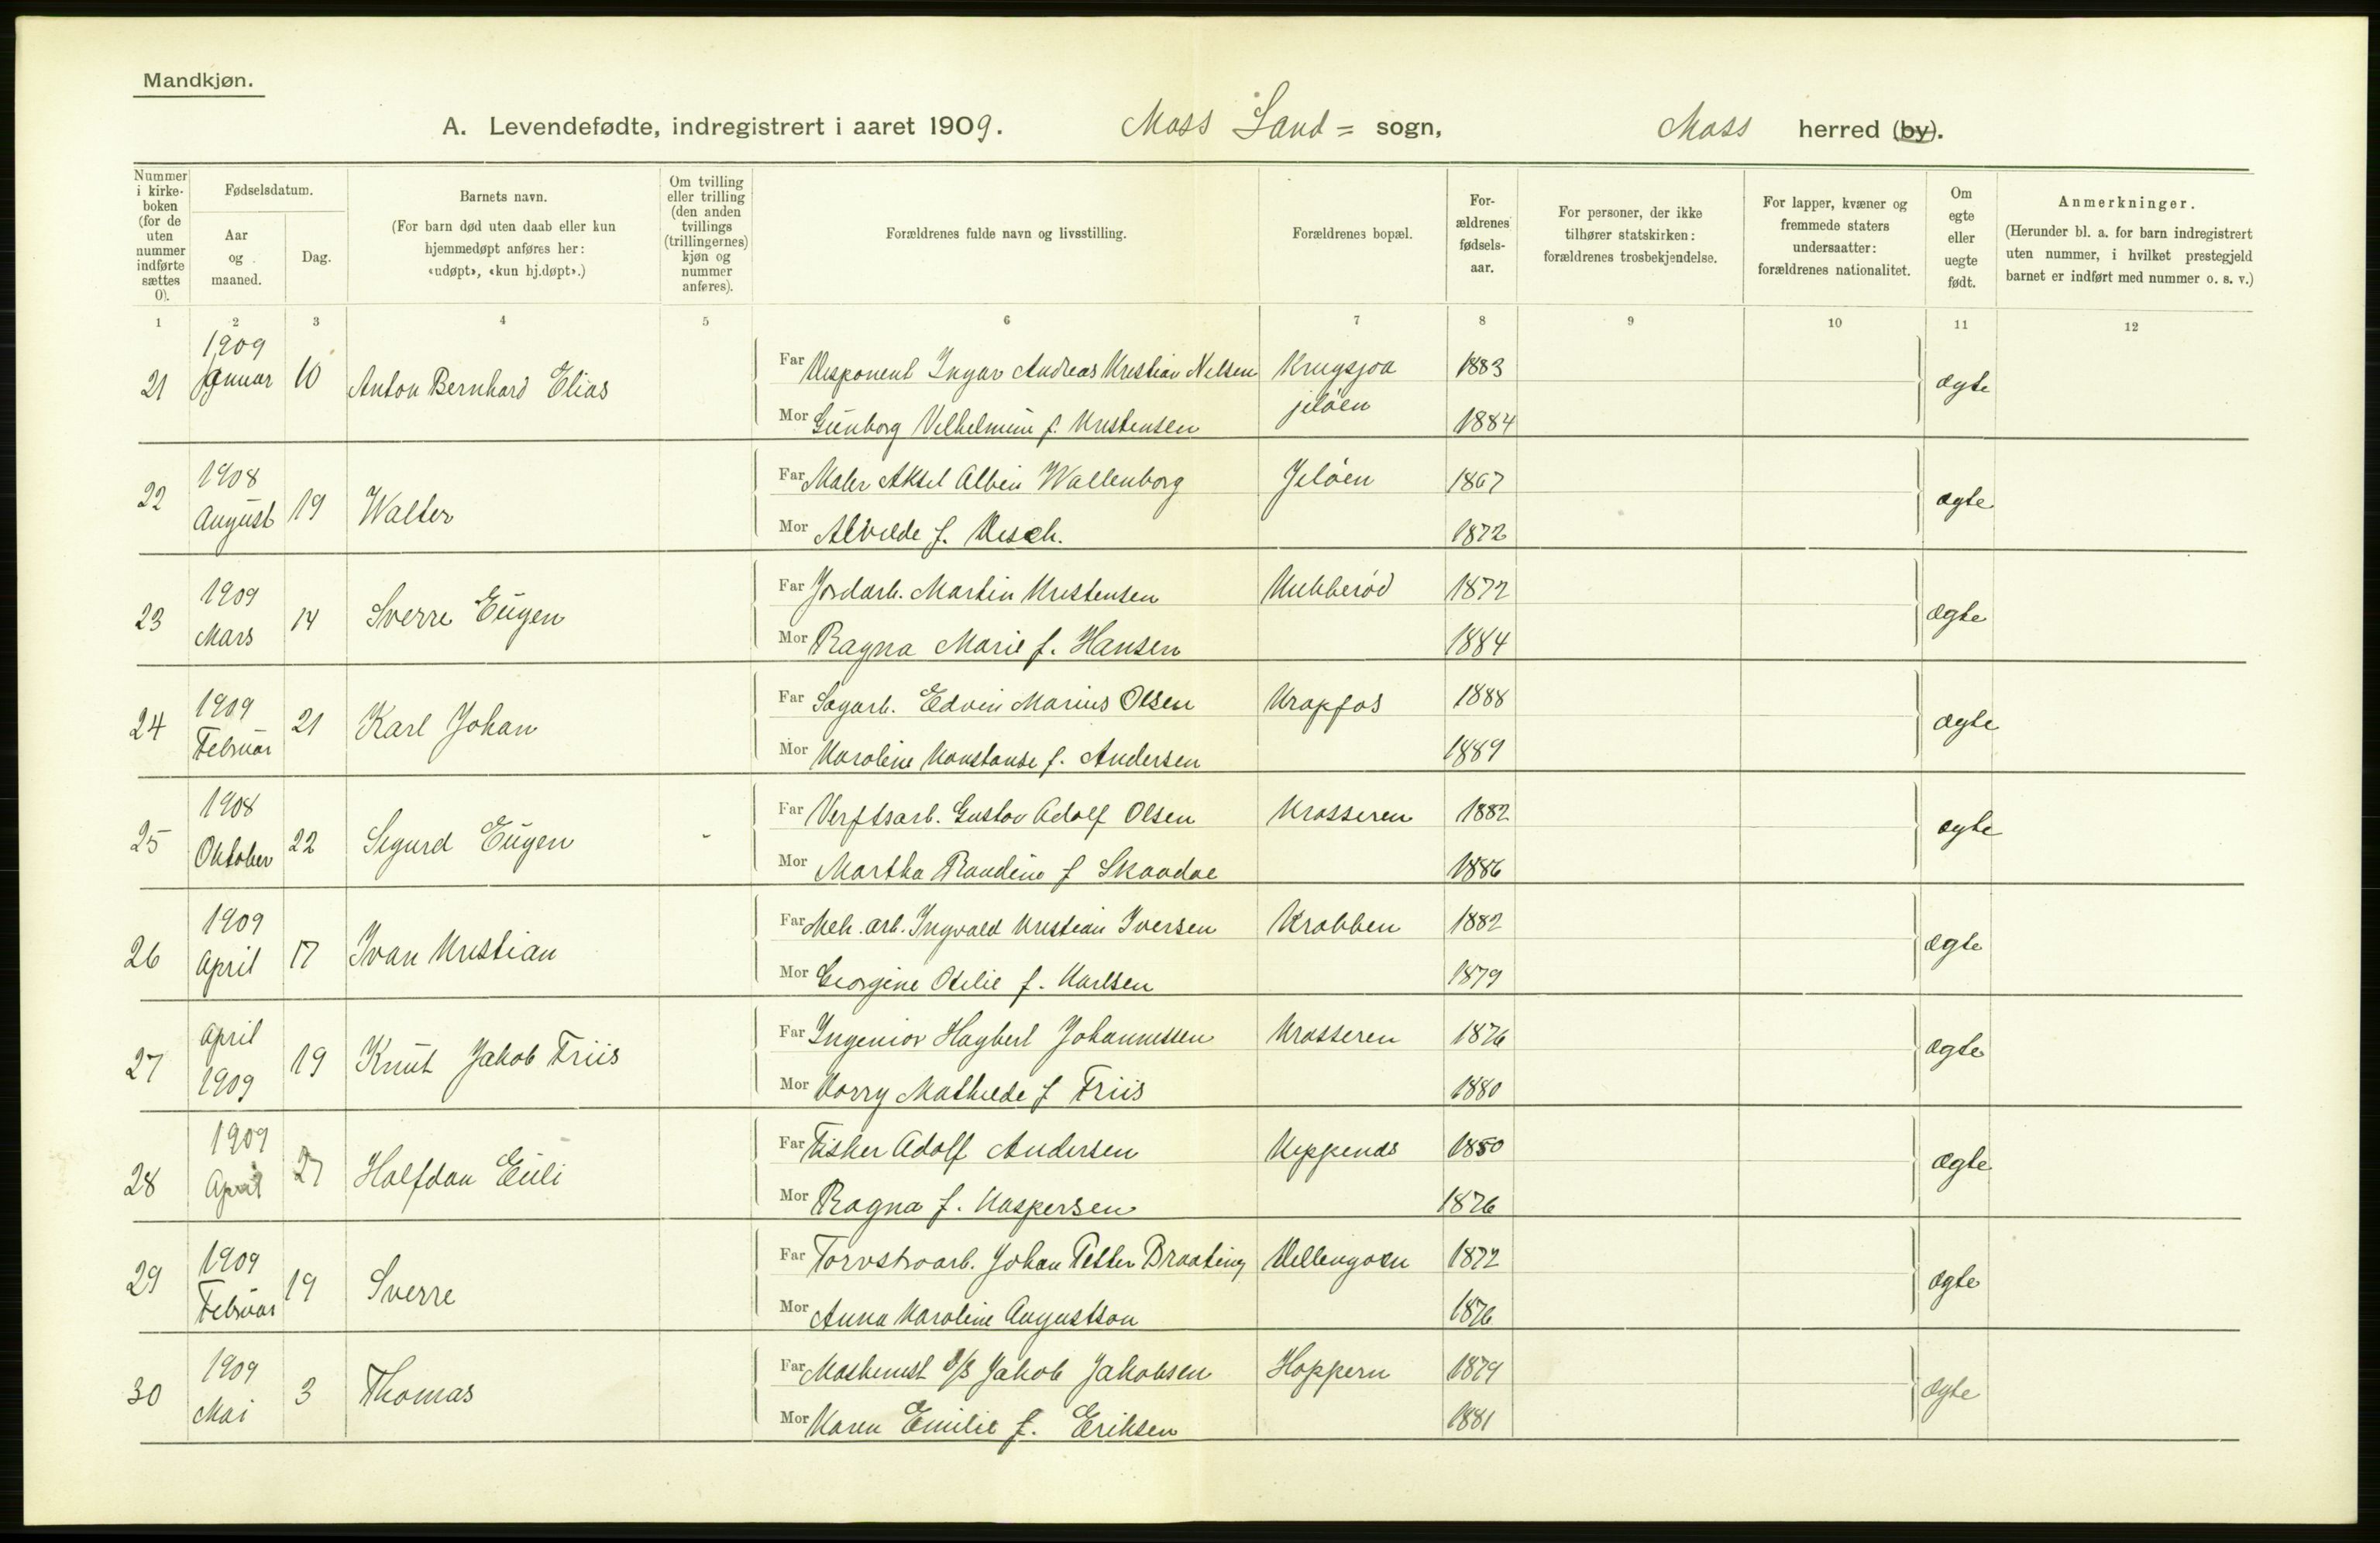 Mandkjøn.
A. Levendefødte, indregistrert i aaret 1909. Moss Land= sogn, Moss herred (by).
Nummer i kirke-boken (for de uten nummer indførte sættes 0).
Fødselsdatum.
Aar og maaned.
Dag.
Barnets navn.
(For barn død uten daab eller kun hjemmedøpt anføres her: «udøpt», «kun hj.døpt».)
Om tvilling eller trilling (den anden tvillings (trillingernes) kjøn og nummer anføres).
Forældrenes fulde navn og livsstilling.
Forældrenes bopæl.
For-ældrenes fødsels-aar.
For personer, der ikke tilhører statskirken: forældrenes trosbekjendelse.
For lapper, kvæner og fremmede staters undersaatter: forældrenes nationalitet.
Om egte eller uegte født.
Anmerkninger.
(Herunder bl. a. for barn indregistrert uten nummer, i hvilket prestegjeld barnet er indført med nummer o. s. v.)
1 2 3 4 5 6 7 8 9 10 11 12
21 1909 Januar 10 Anton Bernhard Elias Far Disponent Ingar Andreas Kristian Nilsen Krugsjoa jeløen 1883 ægte
Mor Gunborg Vilhelmine f. Kristensen 1884
22 1908 August 19 Walter Far Maler Aksel Albin Wallenborg Jeløen 1867 ægte
Mor Alvilde f. Resch. 1872
23 1909 Mars 14 Sverre Eugen Far Jordarb. Martin Kristensen Kubberød 1872 ægte
Mor Ragna Marie f. Hansen 1884
24 1909 Februar 21 Karl Johan Far Sagarb. Edvin Marius Olsen Krapfos 1888 ægte
Mor Karoline Konstanse f. Andersen 1889
25 1908 Oktober 22 Sigurd Eugen - Far Verftsarb. Gustav Adolf Olsen Krosseren 1882 ægte
Mor Martha Randine f Skaadae 1886
26 1909 April 17 Ivan Kristian Far Mek. arb. Ingvald Kristian Iversen Krabben 1882 ægte
Mor Georgine Otilie f. Karlsen 1879
27 April 1909 19 Knut Jakob Friis Far Ingeniør Hagbert Johannessen Krosseren 1876 ægte
Mor Borry Mathilde f Friis 1880
28 1909 April 27 Halfdan Euli Far Fisker Adolf Andersen Kippenes 1880 ægte
Mor Ragna f. Kaspersen 1876
29 1909 Februar 19 Sverre Far Torvstrøarb. Johan Petter Braateng Vellengaen 1872 ægte
Mor Anna Karoline Augustson 1876
30 1909 Mai 3 Thomas Far Maskinist D/S Jakob Jakobsen Hoppern 1879 ægte
Mor Karen Emilie f. Eriksen 1881